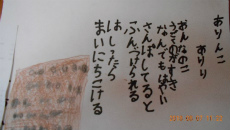 ありんこ
ありり
あんなのこ
うごのがすきさ
なんでもはやい
さんぽしてると
ふんづけられる
はしったら
まいにちこける